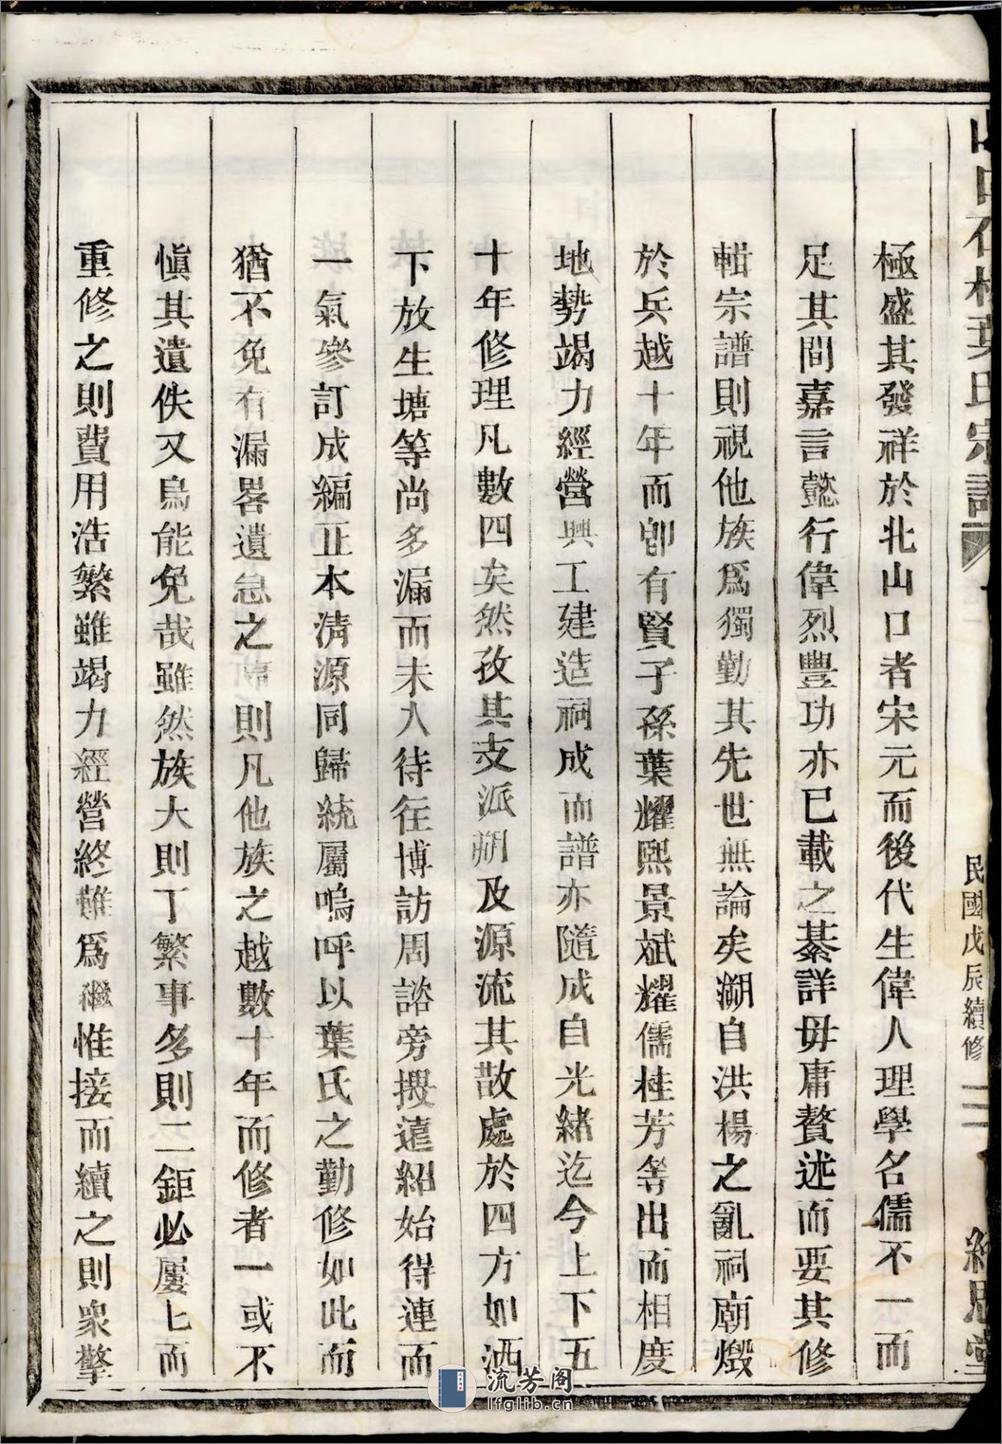 口石林葉氏宗譜
民國戊辰續修
極盛其發祥於北山口者宋元而後代生偉人理學名儒不一而
足其間嘉言懿行偉烈豐功亦已載之綦詳毋庸贅述而要其修
輯宗譜則視他族爲獨勤其先世無論矣溯自洪楊之亂祠廟燬
於兵越十年而卽有賢子孫葉耀熙景斌耀儒桂芳等出而相度
地勢竭力經營興工建造祠成而譜亦隨成自光緒迄今上下五
十年修理凡數四矣然孜其支派溯及源流其散處於四方如洒
下放生塘等尚多漏而未入待往博訪周諮旁搜遠紹始得連而
一氣參訂成編正本清源同歸統屬嗚呼以葉氏之勤修如此而
猶不免有漏畧遺忘之 則凡他族之越數十年而修者一或不
愼其遺佚又烏能免哉雖然族大則丁繁事多則二鉅必屢上而
重修之則費用浩繁雖竭力經營終難爲繼惟接而續之則衆擎
流芳阁
lfglib.cn